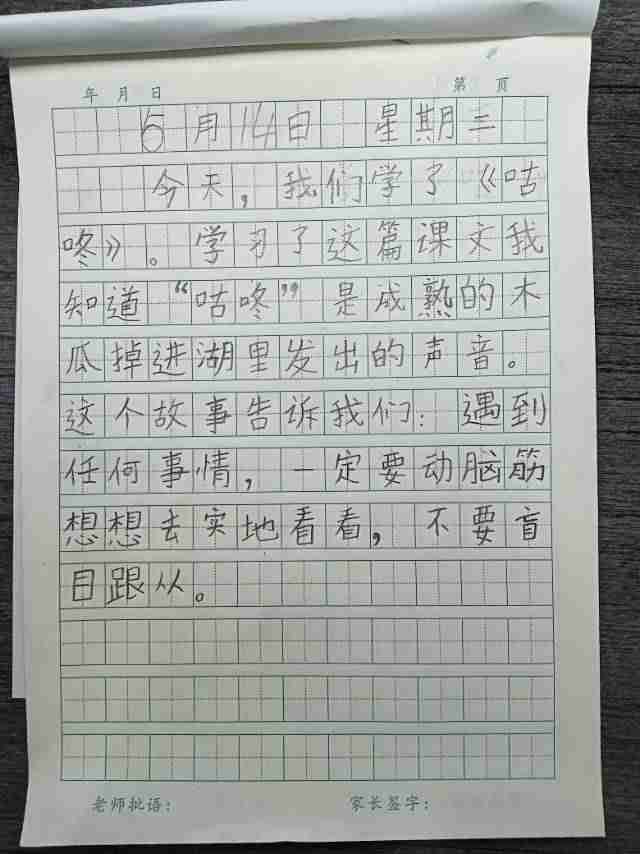 年 月 日 第 页
5月14日 星期三
今天，我们学了《咕
咚》。学习了这篇课文我
知道“咕咚”是成熟的木
瓜掉进湖里发出的声音。
这个故事告诉我们：遇到
任何事情，一定要动脑筋
想想去实地看看，不要盲
目跟从。
老师批语： 家长签字：